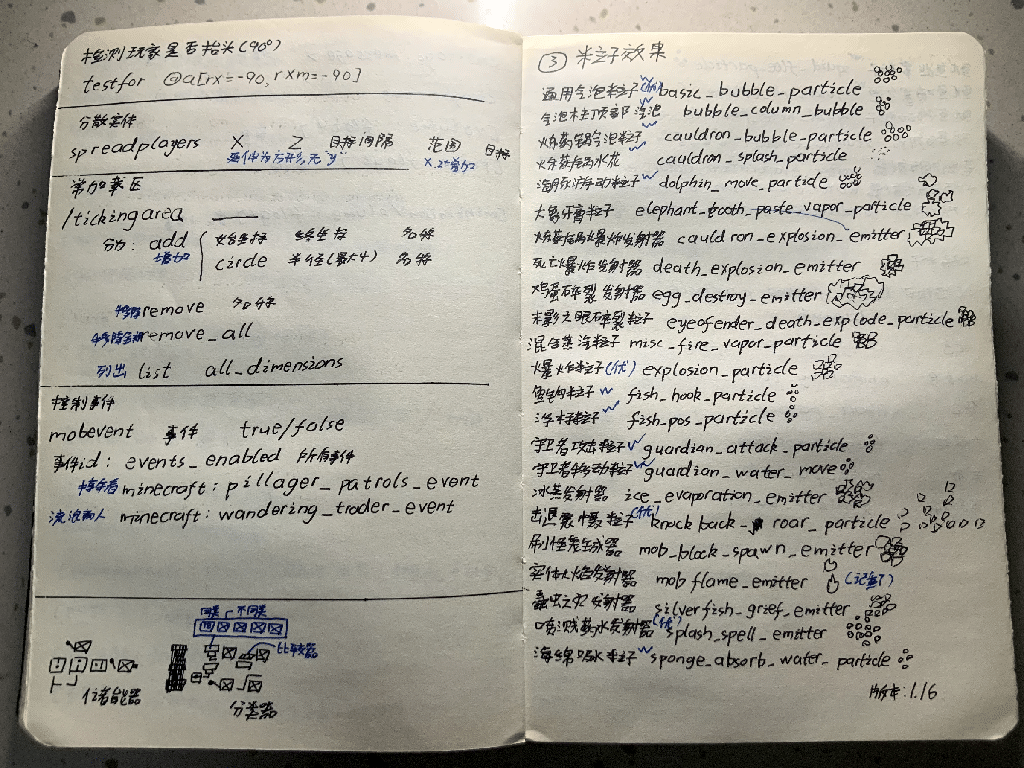 检测玩家是否抬头(90°)
testfor @a[rx=-90,rxm=-90]
分散实体
spreadplayers X Z 目标间隔 范围 目标
整体为方形,无"y"
常加载区
/tickingarea
add 始坐标 终坐标 名称
增加
circle 半径(最大4) 名称
移除 remove 名称
移除全部 remove_all
列出 list all_dimensions
控制事件
mobevent 事件 true/false
事件id: events_enabled 所有事件
掠夺者 minecraft: pillager_patrols_event
流浪商人 minecraft: wandering_trader_event
同类 不同类
比较器
储能器
分类器
③ 粒子效果
通用气泡粒子(优) basic_bubble_particle
气泡柱顶部气泡 bubble_column_bubble
炼药锅泡粒子 cauldron_bubble_particle
炼药锅水花 cauldron_splash_particle
海豚游动粒子 dolphin_move_particle
大象牙膏粒子 elephant_tooth_paste_vapor_particle
炼药锅爆炸发射器 cauldron_explosion_emitter
死亡爆炸发射器 death_explosion_emitter
鸡蛋碎裂发射器 egg_destroy_emitter
末影之眼碎裂粒子 eyeofender_death_explode_particle
混合蒸汽粒子 misc_fire_vapor_particle
爆炸粒子(优) explosion_particle
鱼钩粒子 fish_hook_particle
浮标粒子 fish_pos_particle
守卫者攻击粒子 guardian_attack_particle
守卫者移动粒子 guardian_water_move
冰蒸发射器 ice_evaporation_emitter
击退震慑粒子(优) knockback_roar_particle
刷怪发球器 mob_block_spawn_emitter
实体火焰发射器 mobflame_emitter
蠹虫之灾发射器 silverfish_grief_emitter
喷溅药水发射器(优) splash_spell_emitter
海绵吸水粒子 sponge_absorb_water_particle
版本:1.16